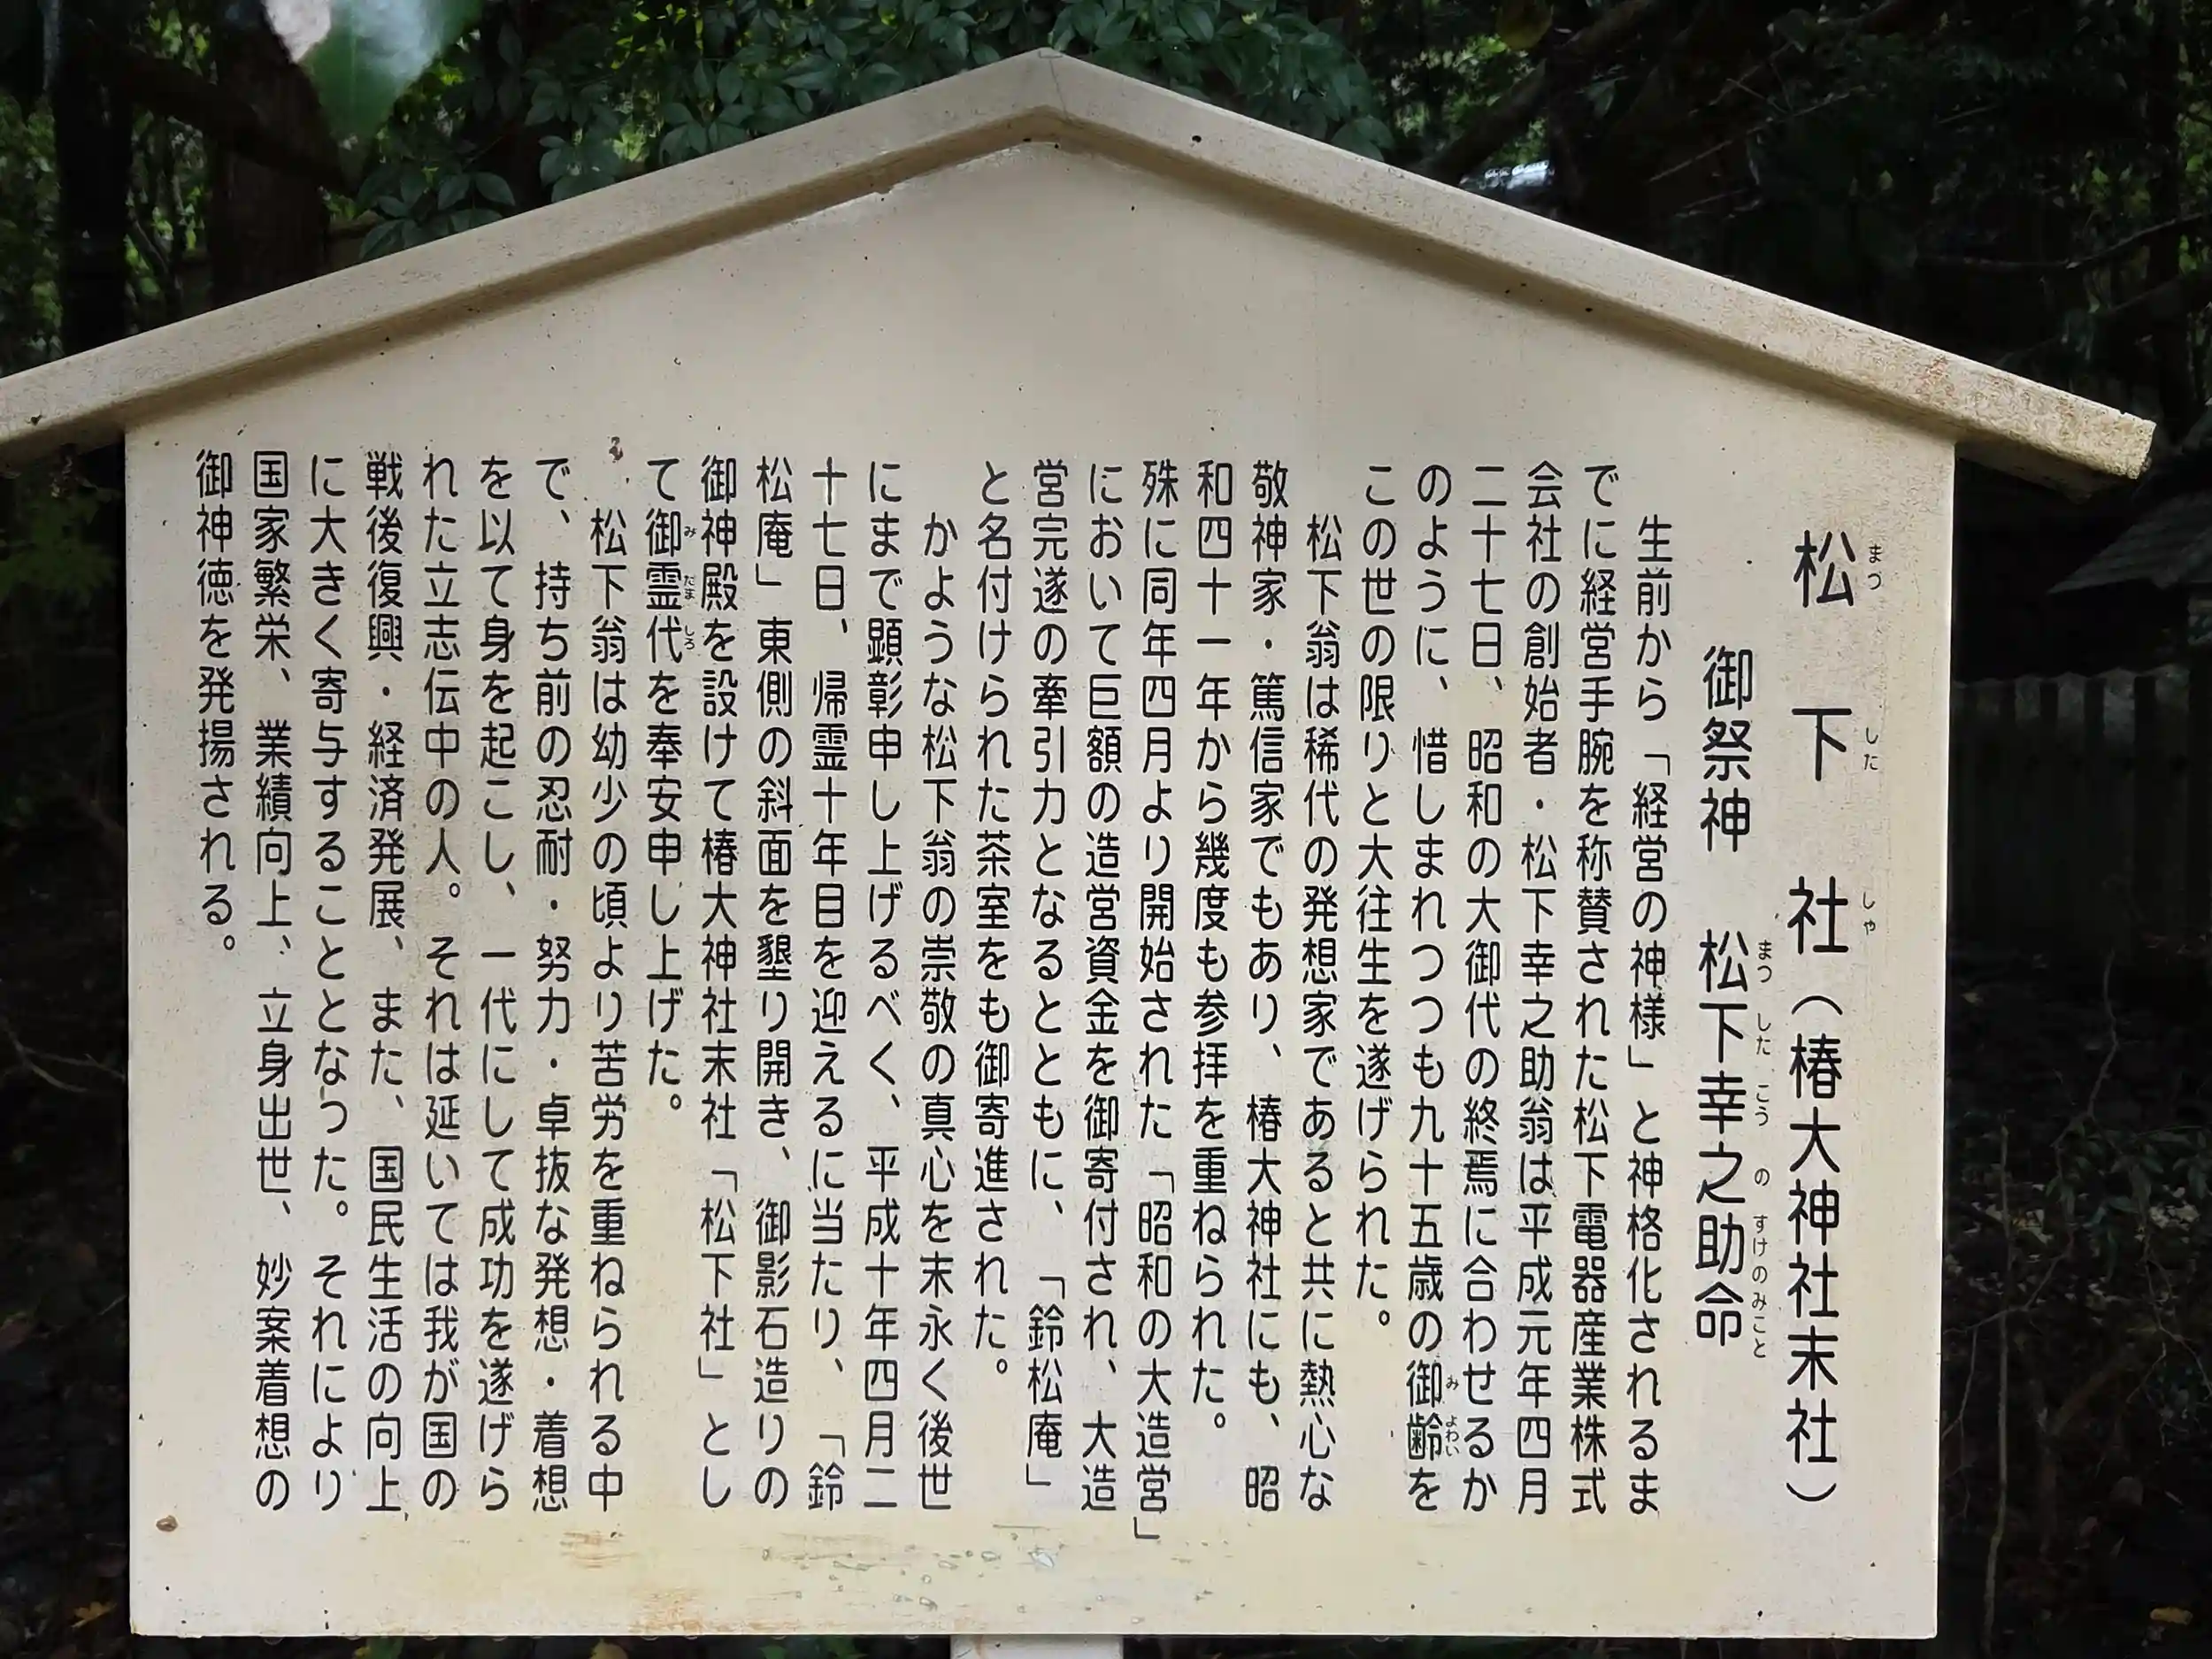 松下社（椿大神社末社）
御祭神　松下幸之助命
生前から「経営の神様」と神格化されるま
でに経営手腕を称賛された松下電器産業株式
会社の創始者・松下幸之助翁は平成元年四月
二十七日、昭和の大御代の終焉に合わせるか
のように、惜しまれつつも九十五歳の御齢を
この世の限りと大往生を遂げられた。
松下翁は稀代の発想家であると共に熱心な
敬神家・篤信家でもあり、椿大神社にも、昭
和四十一年から幾度も参拝を重ねられた。
殊に同年四月より開始された「昭和の大造営」
において巨額の造営資金を御寄付され、大造
営完遂の牽引力となるとともに、「鈴松庵」
と名付けられた茶室をも御寄進された。
かような松下翁の崇敬の真心を末永く後世
にまで顕彰申し上げるべく、平成十年四月二
十七日、帰霊十年目を迎えるに当たり、「鈴
松庵」東側の斜面を墾り開き、御影石造りの
御神殿を設けて椿大神社末社「松下社」とし
て御霊代を奉安申し上げた。
松下翁は幼少の頃より苦労を重ねられる中
で、持ち前の忍耐・努力・卓抜な発想・着想
を以て身を起こし、一代にして成功を遂げら
れた立志伝中の人。それは延いては我が国の
戦後復興・経済発展、また、国民生活の向上
に大きく寄与することとなった。それにより
国家繁栄、業績向上、立身出世、妙案着想の
御神徳を発揚される。